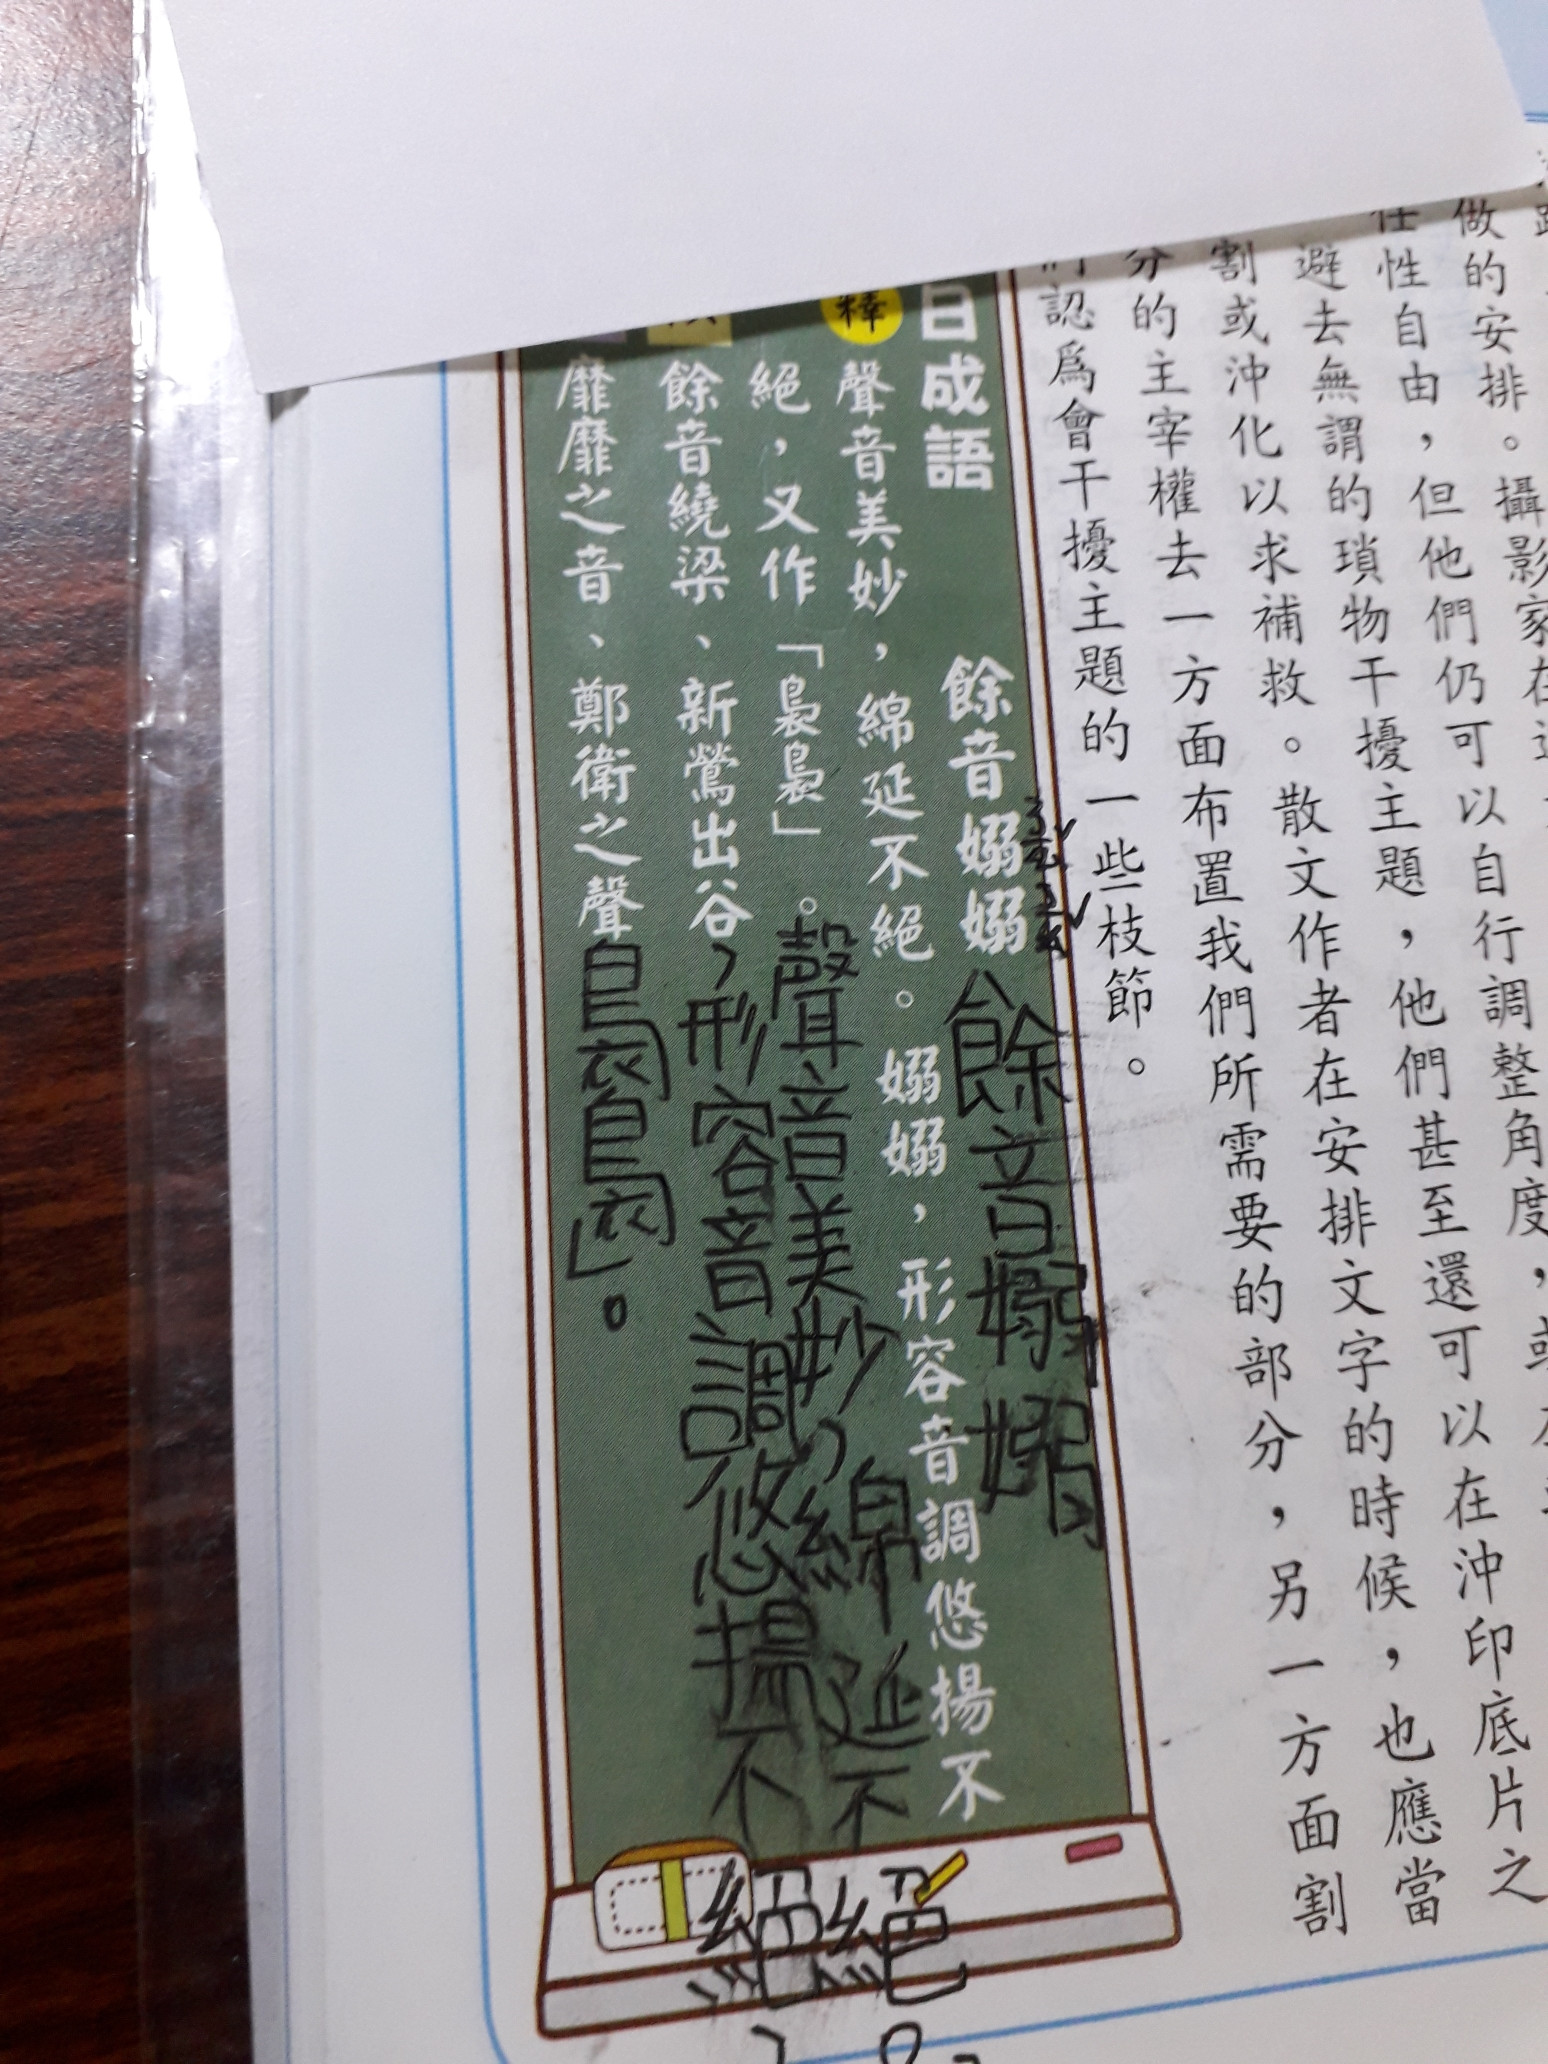 做的安排。攝影家在
任性自由，但他們仍可以自行調整角度，或
避去無謂的瑣物干擾主題，他們甚至還可以在沖印底片之
割或沖化以求補救。散文作者在安排文字的時候，也應當
分的主宰權去一方面布置我們所需要的部分，另一方面割
們認爲會干擾主題的一些枝節。
日成語 餘音嫋嫋
餘音嫋嫋
釋 聲音美妙，綿延不絕。嫋嫋，形容音調悠揚不
絕，又作「裊裊」。
聲音美妙，綿延不絕。
餘音繞梁、新鶯出谷
，形容音調悠揚不絕，
靡靡之音、鄭衛之聲
裊裊」。